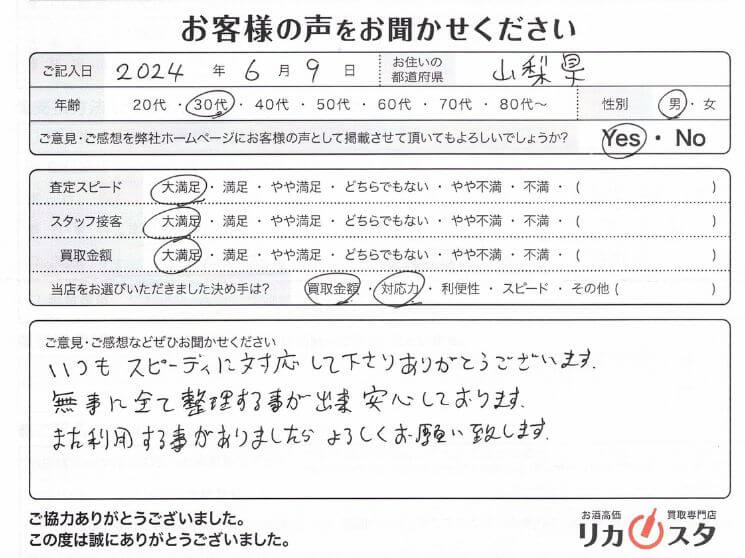 お客様の声をお聞かせください
ご記入日 2024 年 6 月 9 日 お住いの都道府県 山梨県
年齢 20代 ・ 30代 ・ 40代 ・ 50代 ・ 60代 ・ 70代 ・ 80代〜 性別 男 ・ 女
ご意見・ご感想を弊社ホームページにお客様の声として掲載させて頂いてもよろしいでしょうか? Yes ・ No
査定スピード 大満足 ・ 満足 ・ やや満足 ・ どちらでもない ・ やや不満 ・ 不満 ・ ( )
スタッフ接客 大満足 ・ 満足 ・ やや満足 ・ どちらでもない ・ やや不満 ・ 不満 ・ ( )
買取金額 大満足 ・ 満足 ・ やや満足 ・ どちらでもない ・ やや不満 ・ 不満 ・ ( )
当店をお選びいただきました決め手は? 買取金額 ・ 対応力 ・ 利便性 ・ スピード ・ その他 ( )
ご意見・ご感想などぜひお聞かせください
いつも スピーディに対応して下さりありがとうございます.
無事に全て整理する事が出来 安心しております.
また利用する事がありましたら よろしくお願い致します.
ご協力ありがとうございました。
この度は誠にありがとうございました。
お酒高価 買取専門店
リカスタ